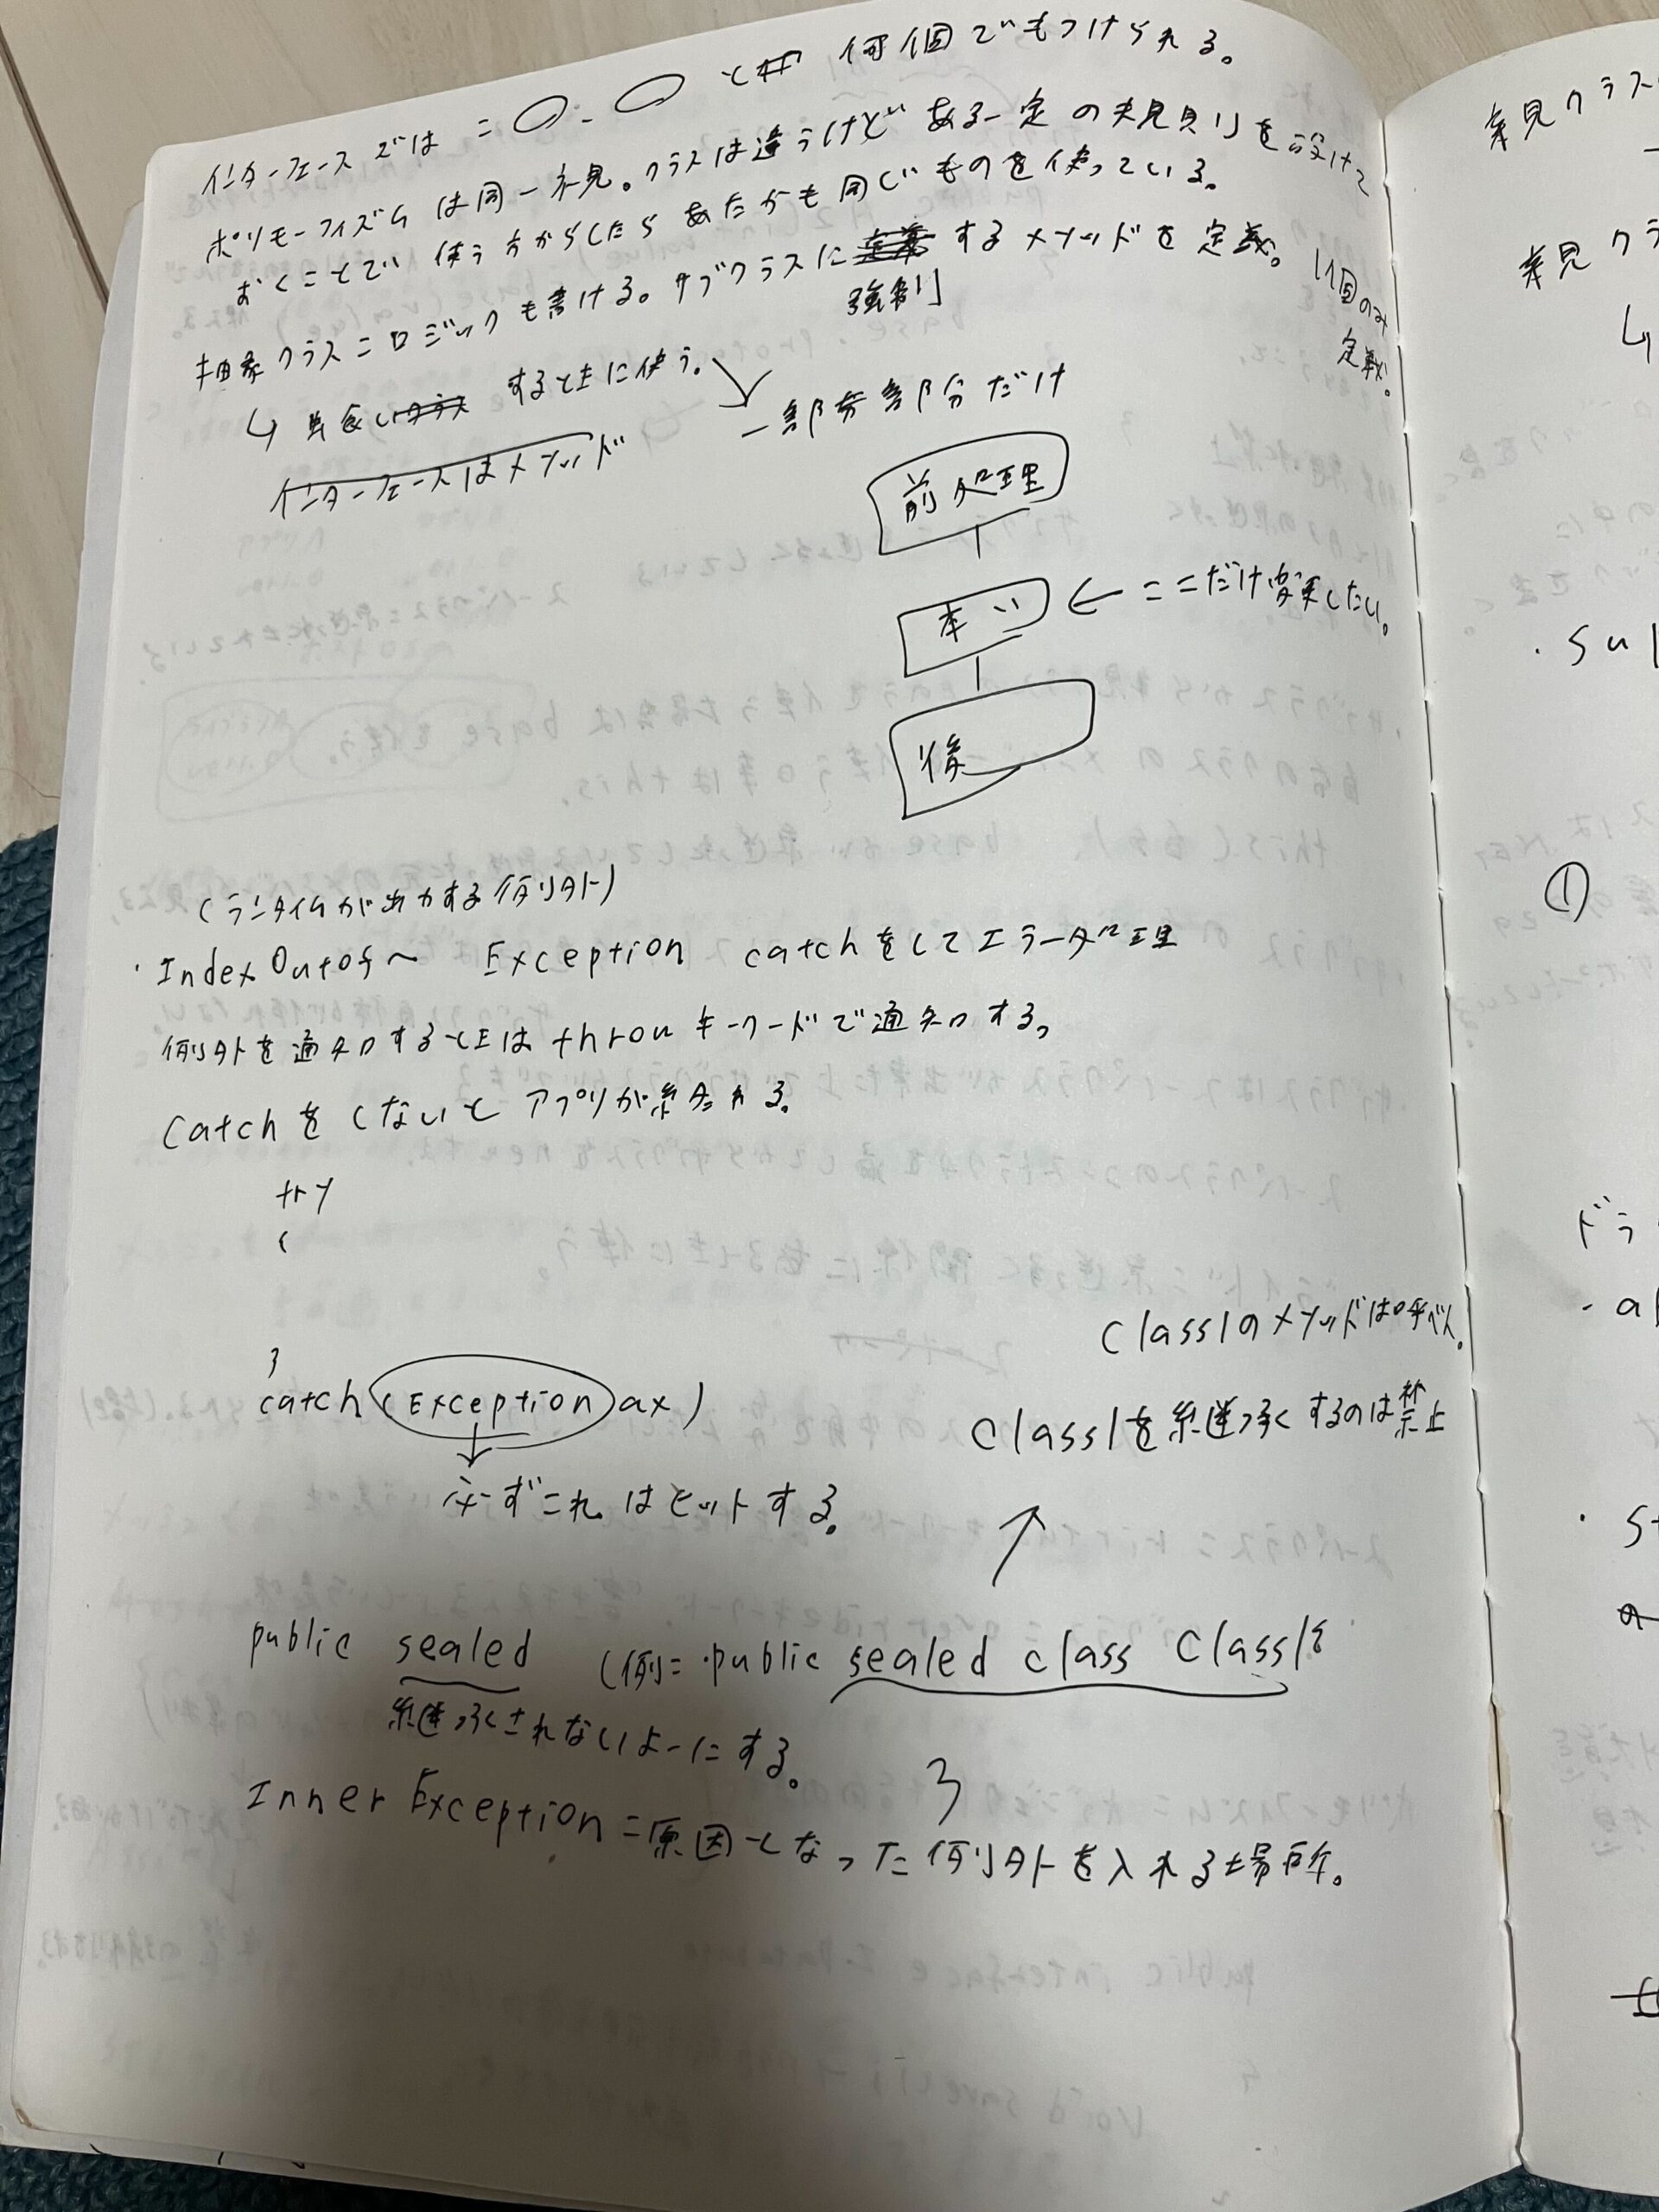 インターフェースでは = ○. ○ と 何個でもつけられる。
ポリモーフィズムは同一視。クラスは違うけどある一定の規則を設けて
おくことで 使う方からしたらあたかも同じものを使っている。
抽象クラス=ロジックも書ける。サブクラスに定義するメソッドを定義。
強制
1個のみ
定義。
↳ するときに使う。
一部分部分だけ
インターフェースはメソッド
前処理
本
← ここだけ変えたい。
後
(ランタイムが出力する例外)
・IndexOutof〜 Exception catchをしてエラー処理
例外を通知するときは throw キーワードで通知する。
catchをしないと アプリが終わる。
try
{
}
catch (Exception ax)
↓
必ずこれはヒットする。
Class1のメソッドは呼べん。
Class1を継承するのは禁止
↗
public sealed (例=.public sealed class Class1{
継承されないよーにする。
}
Inner Exception=原因となった例外を入れる場所。
継クラス
①
・